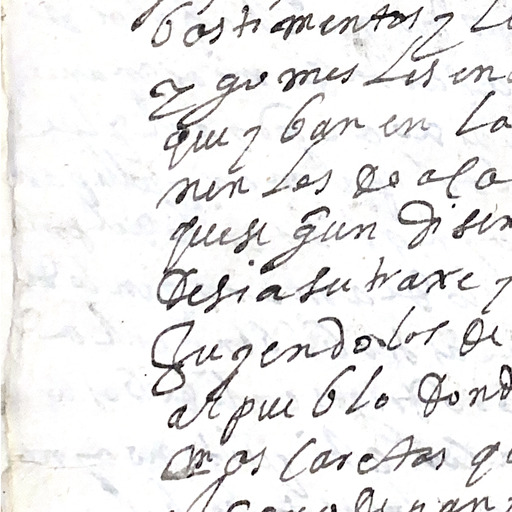 bastimentos y L
y gomes les en
que yban en la
nen los de ala
quese gun disen
desia su traxe y
huyendolos de
al pueblo dond
as caretas qu